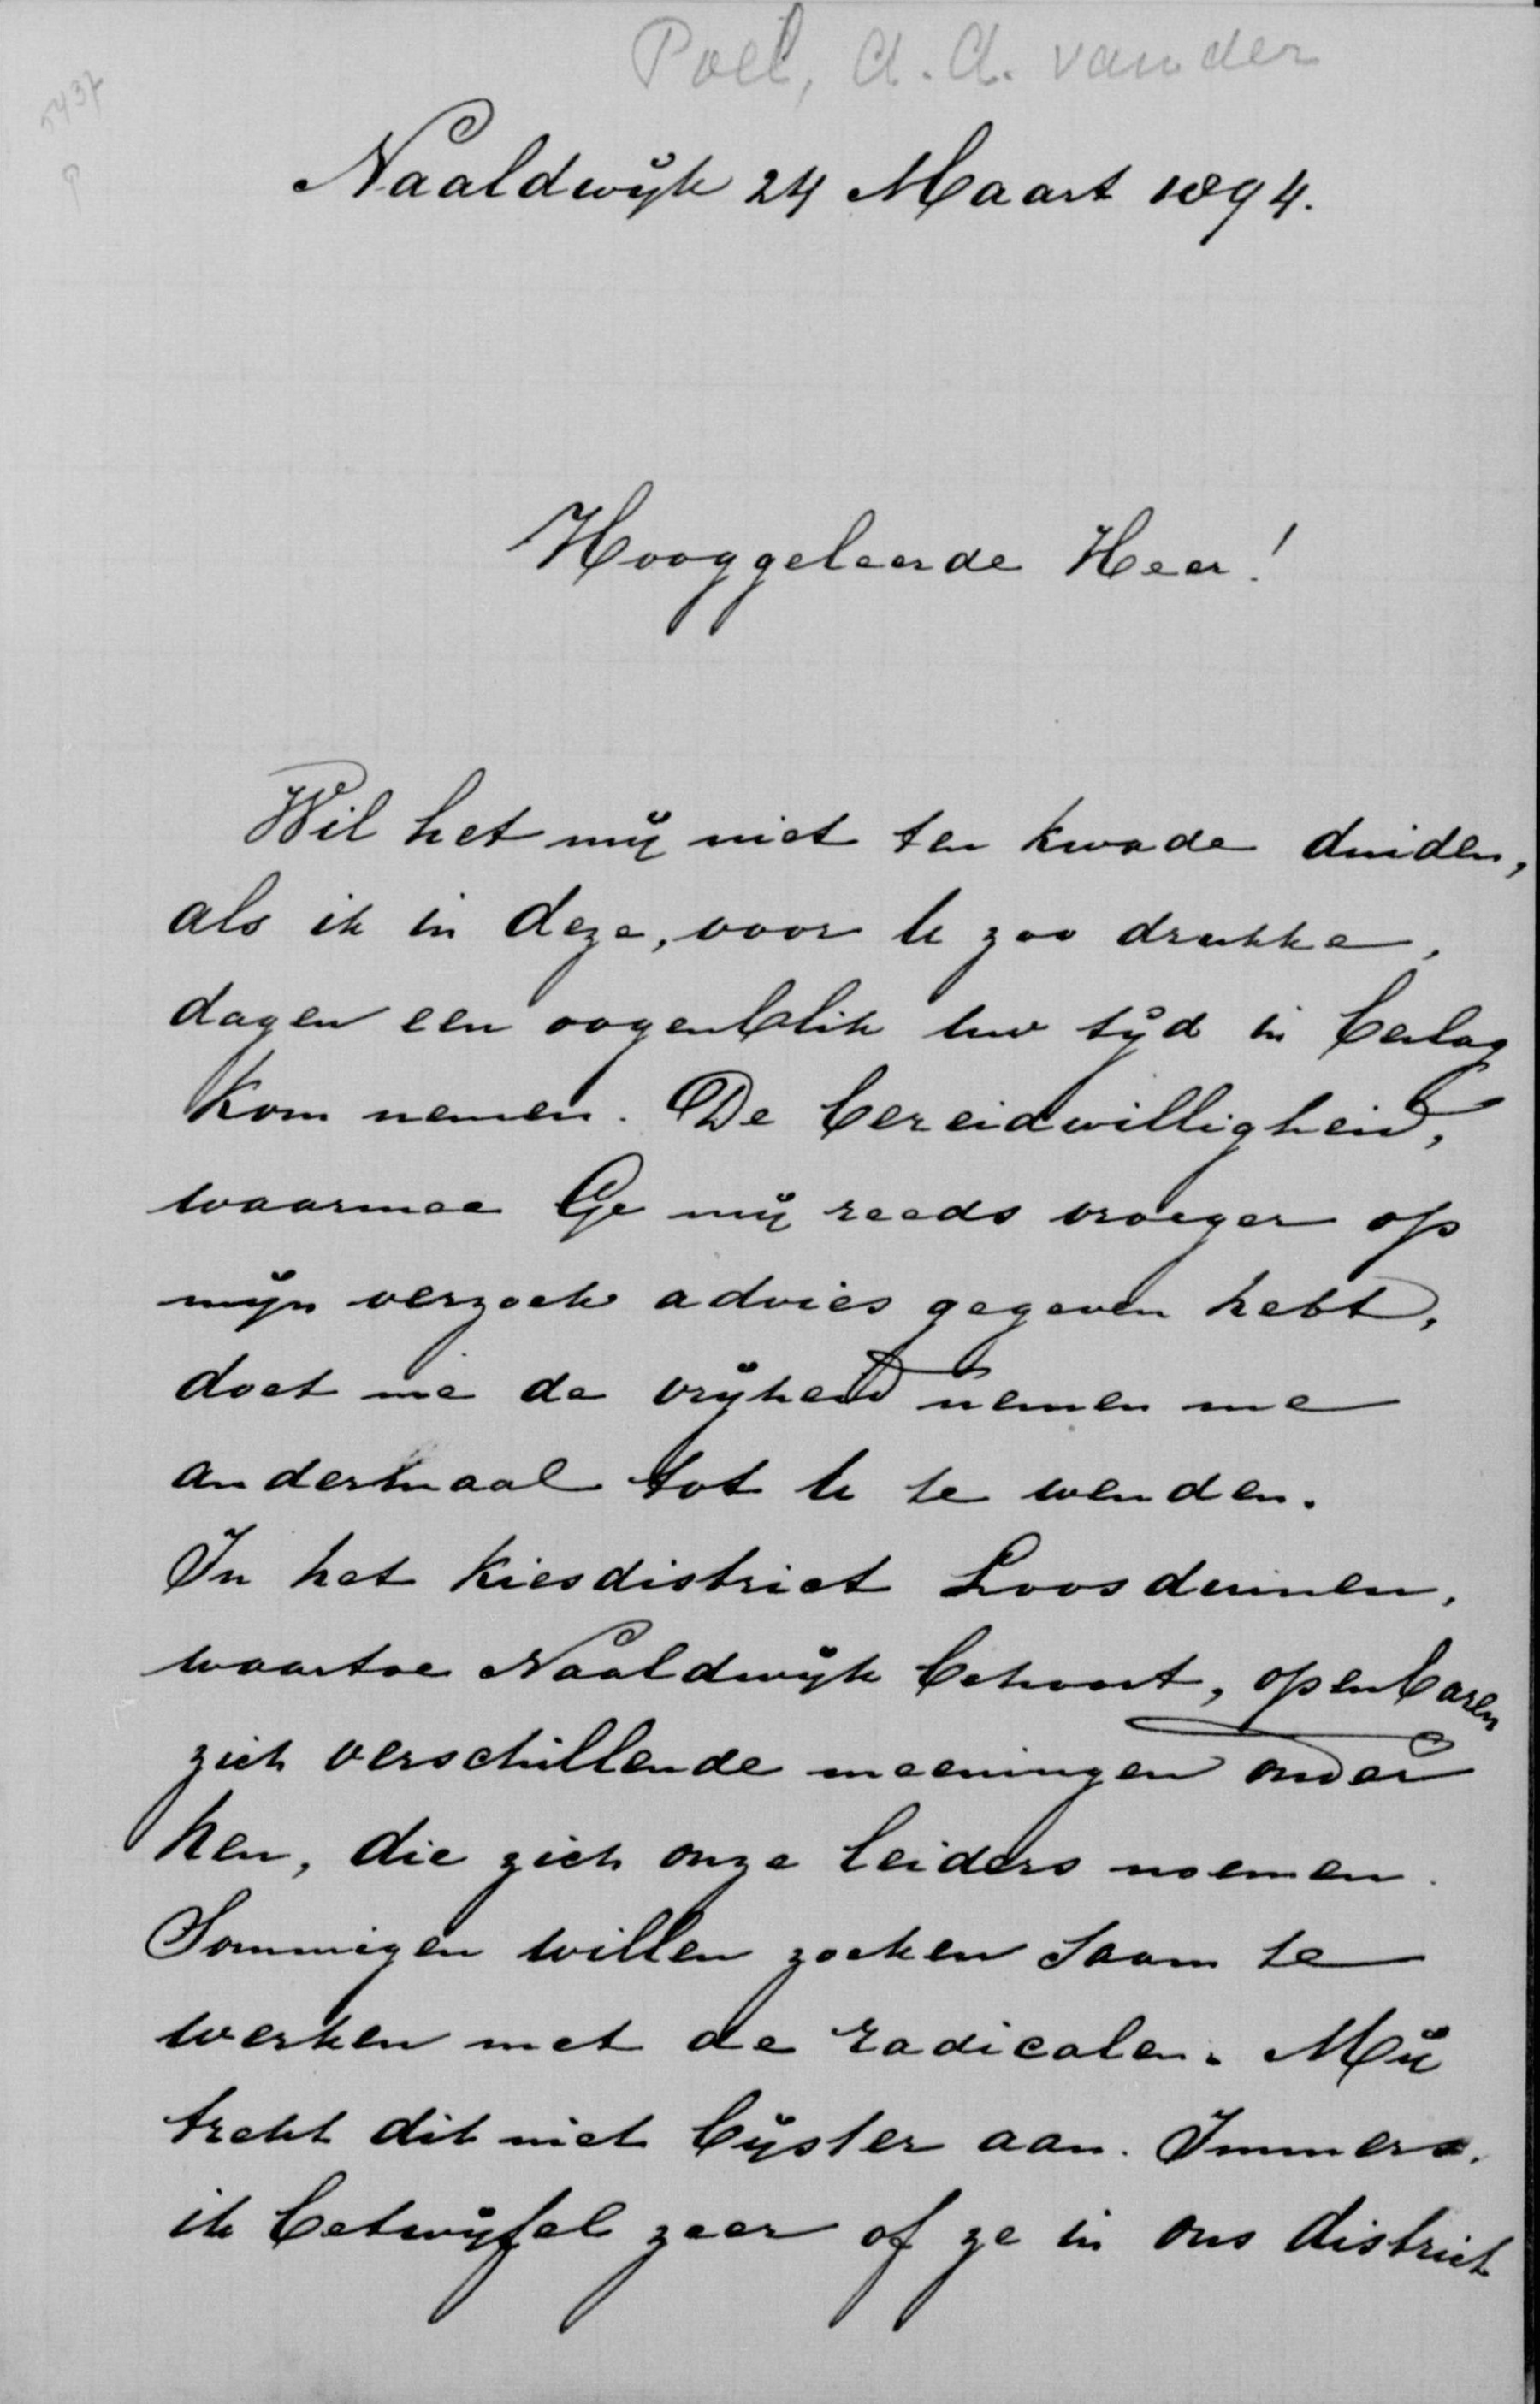 Poel, A. A. van der
5437
P
Naaldwijk 24 Maart 1894.
Hooggeleerde Heer!
Wil het mij niet ten kwade duiden,
als ik in deze, voor U zoo drukke,
dagen een oogenblik uw tijd in beslag
kom nemen. De bereidwilligheid,
waarmee Ge mij reeds vroeger op
mijn verzoek advies gegeven hebt,
doet me de vrijheid nemen me
andermaal tot U te wenden.
In het kiesdistrict Loosduinen,
waartoe Naaldwijk behoort, openbaren
zich verschillende meeningen onder
hen, die zich onze leiders noemen.
Sommigen willen zoeken saam te
werken met de radicalen. Mij
trekt dit niet bijster aan. Immers.
ik betwijfel zeer of ze in ons district